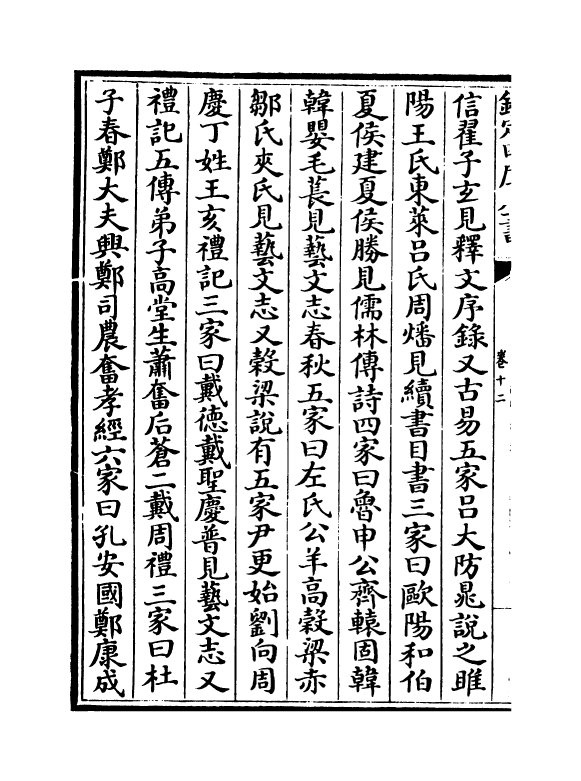 卷十二
信翟子玄見釋文序錄又古易五家吕大防晁說之睢
陽王氏東萊吕氏周燔見續書目書三家曰歐陽和伯
夏侯建夏侯勝見儒林傳詩四家曰魯申公齊轅固韓
韓嬰毛萇見藝文志春秋五家曰左氏公羊高穀梁赤
鄒氏夾氏見藝文志又穀梁說有五家尹更始劉向周
慶丁姓王亥禮記三家曰戴德戴聖慶普見藝文志又
禮記五傳弟子高堂生蕭奮后蒼二戴周禮三家曰杜
子春鄭大夫興鄭司農奮孝經六家曰孔安國鄭康成